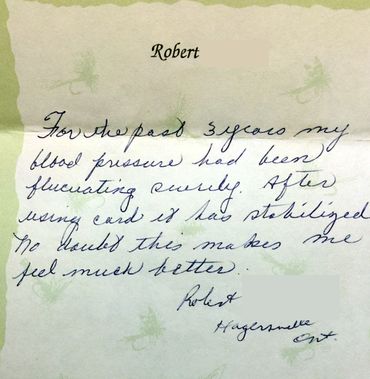 Robert
For the past 3 years my
blood pressure had been
flucuating surely. After
using card it has stabilized
No doubt this makes me
feel much better.
Robert
Hagersville
Ont.